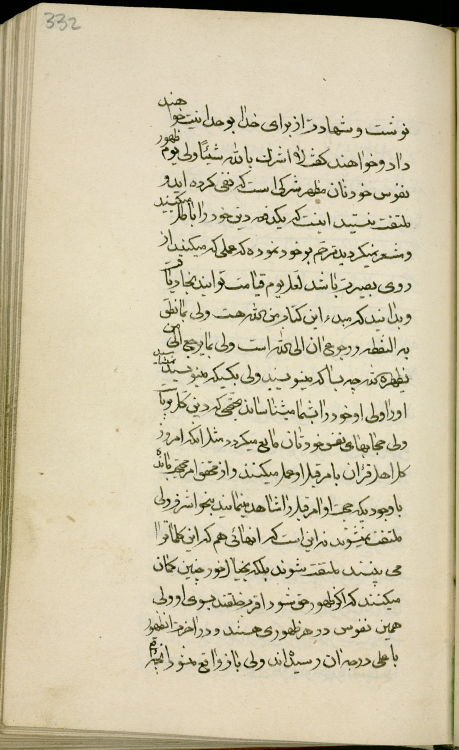 332
نوشت و شهادت از برای خدا بوحدانیت خواهند
داد و خواهند کفت لا اشرك بالله شیئا ولی یوم ظهور
نفوس خودتان مظهر شرکی است که نفی کرده اید و
ملتفت نیستید اینست که یکدفعه دین خود را باطل میکنید
و مشعر نمیکردید ترحم بر خود نموده که عملی که میکنید از
روی بصیرت باشد لعل یوم قیامت توانید نجات یافت
و بدانید که مبدء این کتاب من الله هست ولی بما نطق
به النقطه و رجوع ان الی الله است ولی بما یرجع الی من
یظهره الله چه بسا که مینویسید ولی بکسیکه مینویسید نمیشناسید
او را ولی او خود را بشما میشناساند بحجتی که دین کل برپا
ولی حجابهای نفس خودتان مانع میکردد مثل انکه امروز
کل اهل قران بامر قبل او عمل میکنند و از محقق امر محتجب مانده
باوجودیکه حجت اوامر قبل را مشاهده مینمایند بنحو اشرف ولی
ملتفت نمیشوند نه این است که انهائی هم که این کلمات را
می بینند ملتفت شوند بلکه بخیال خود چنین کمان
میکنند که اکر ظهور حق شود اقرب خلقند بسوی او ولی
همین نفوس در هر ظهوری هستند و در اخر هر ظهور
باعلی درجه ان رسیده اند ولی باز واقع میشود انچه